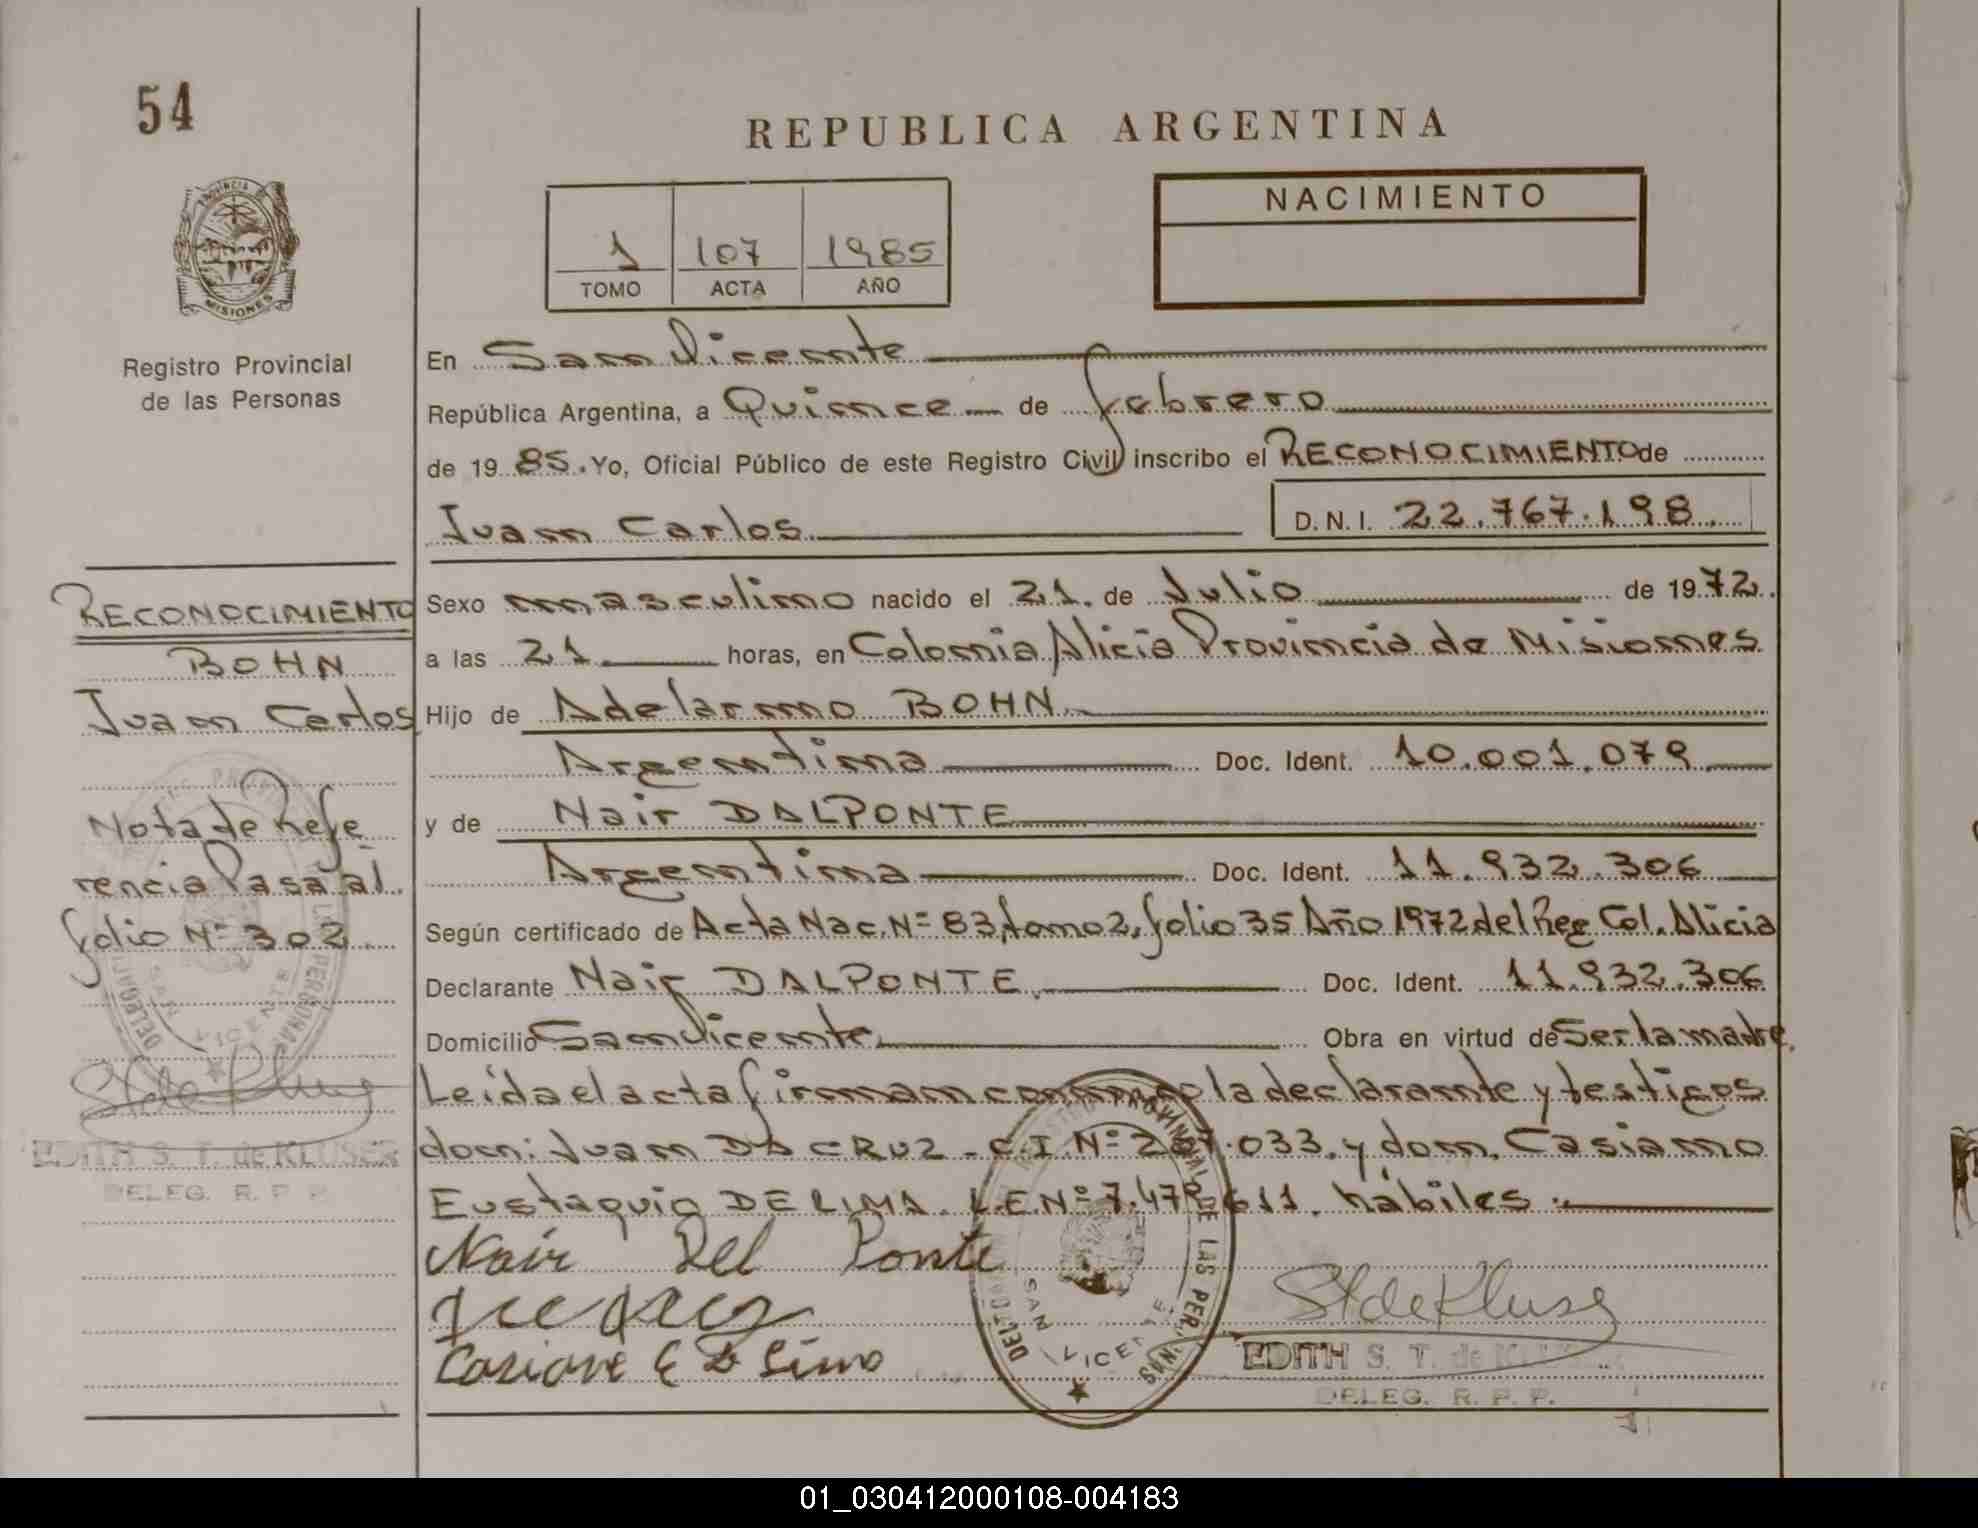 54
REPUBLICA ARGENTINA
PROVINCIA
MISIONES
Registro Provincial
de las Personas
1 107 1985
TOMO ACTA AÑO
NACIMIENTO
En San Vicente
República Argentina, a Quince de febrero
de 1985. Yo, Oficial Público de este Registro Civil inscribo el RECONOCIMIENTO de
Juan Carlos D.N.I. 22.767.198.
Sexo masculino nacido el 21. de Julio de 1972.
a las 21 horas, en Colonia Alicia Provincia de Misiones
Hijo de Adelarmo BOHN
Argentina Doc. Ident. 10.001.079
y de Nair DALPONTE
Argentina Doc. Ident. 11.932.306
Según certificado de Acta Nac. Nº 83, tomo 2, folio 35 Año 1972 del Reg Col. Alicia
Declarante Nair DALPONTE. Doc. Ident. 11.932.306
Domicilio San Vicente. Obra en virtud de Ser la madre.
Leída el acta firman conmigo la declarante y testigos
don: Juan DA CRUZ - C.I. Nº 267.033. y don. Casiano
Eustaquio DE LIMA. L.E. Nº 7.479.611. hábiles.
Nair Del Ponte
Casiano E D Lima
St de Kluse
EDITH S. T. de KLUSER
DELEG. R. P. P.
SAN VICENTE
RECONOCIMIENTO
BOHN
Juan Carlos
Nota de Refe
rencia Pasa al
folio Nº 302
SAN VICENTE
St de Kluse
EDITH S. T. de KLUSER
DELEG. R. P. P.
01_030412000108-004183